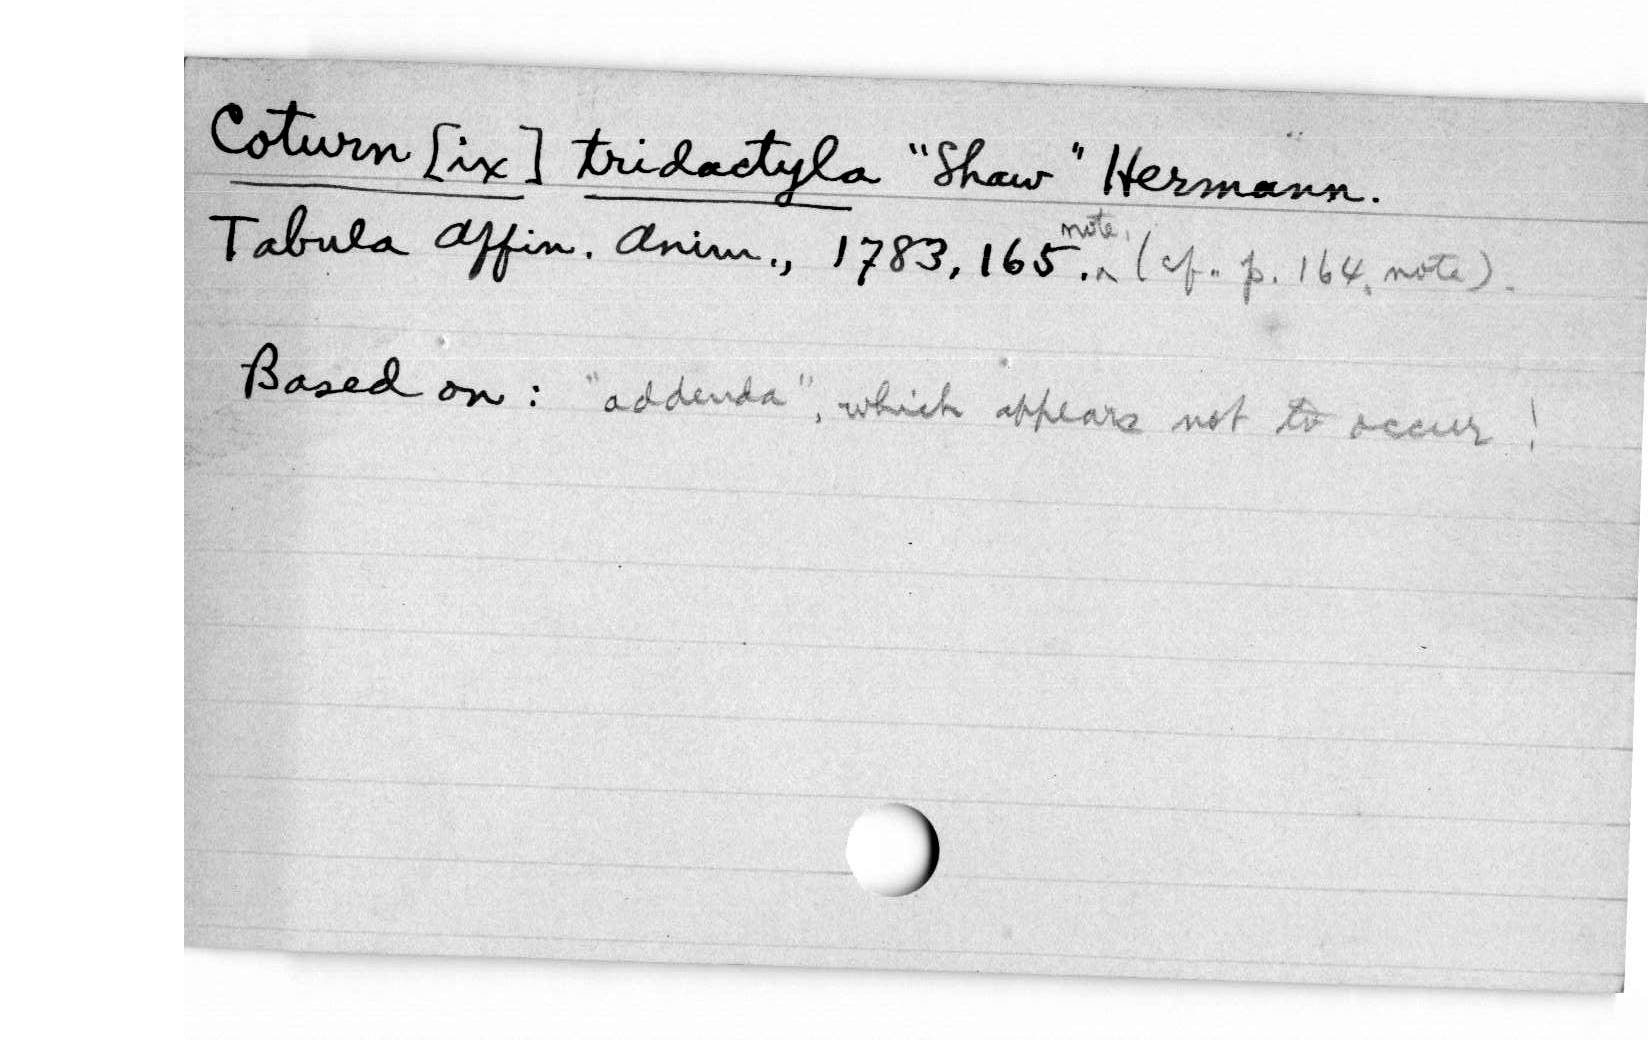 Coturn [ix] tridactyla "Shaw" Hermann.
Tabula Affin. Anim., 1783, 165. note, (cf. p. 164, note).
Based on: "addenda", which appears not to occur!